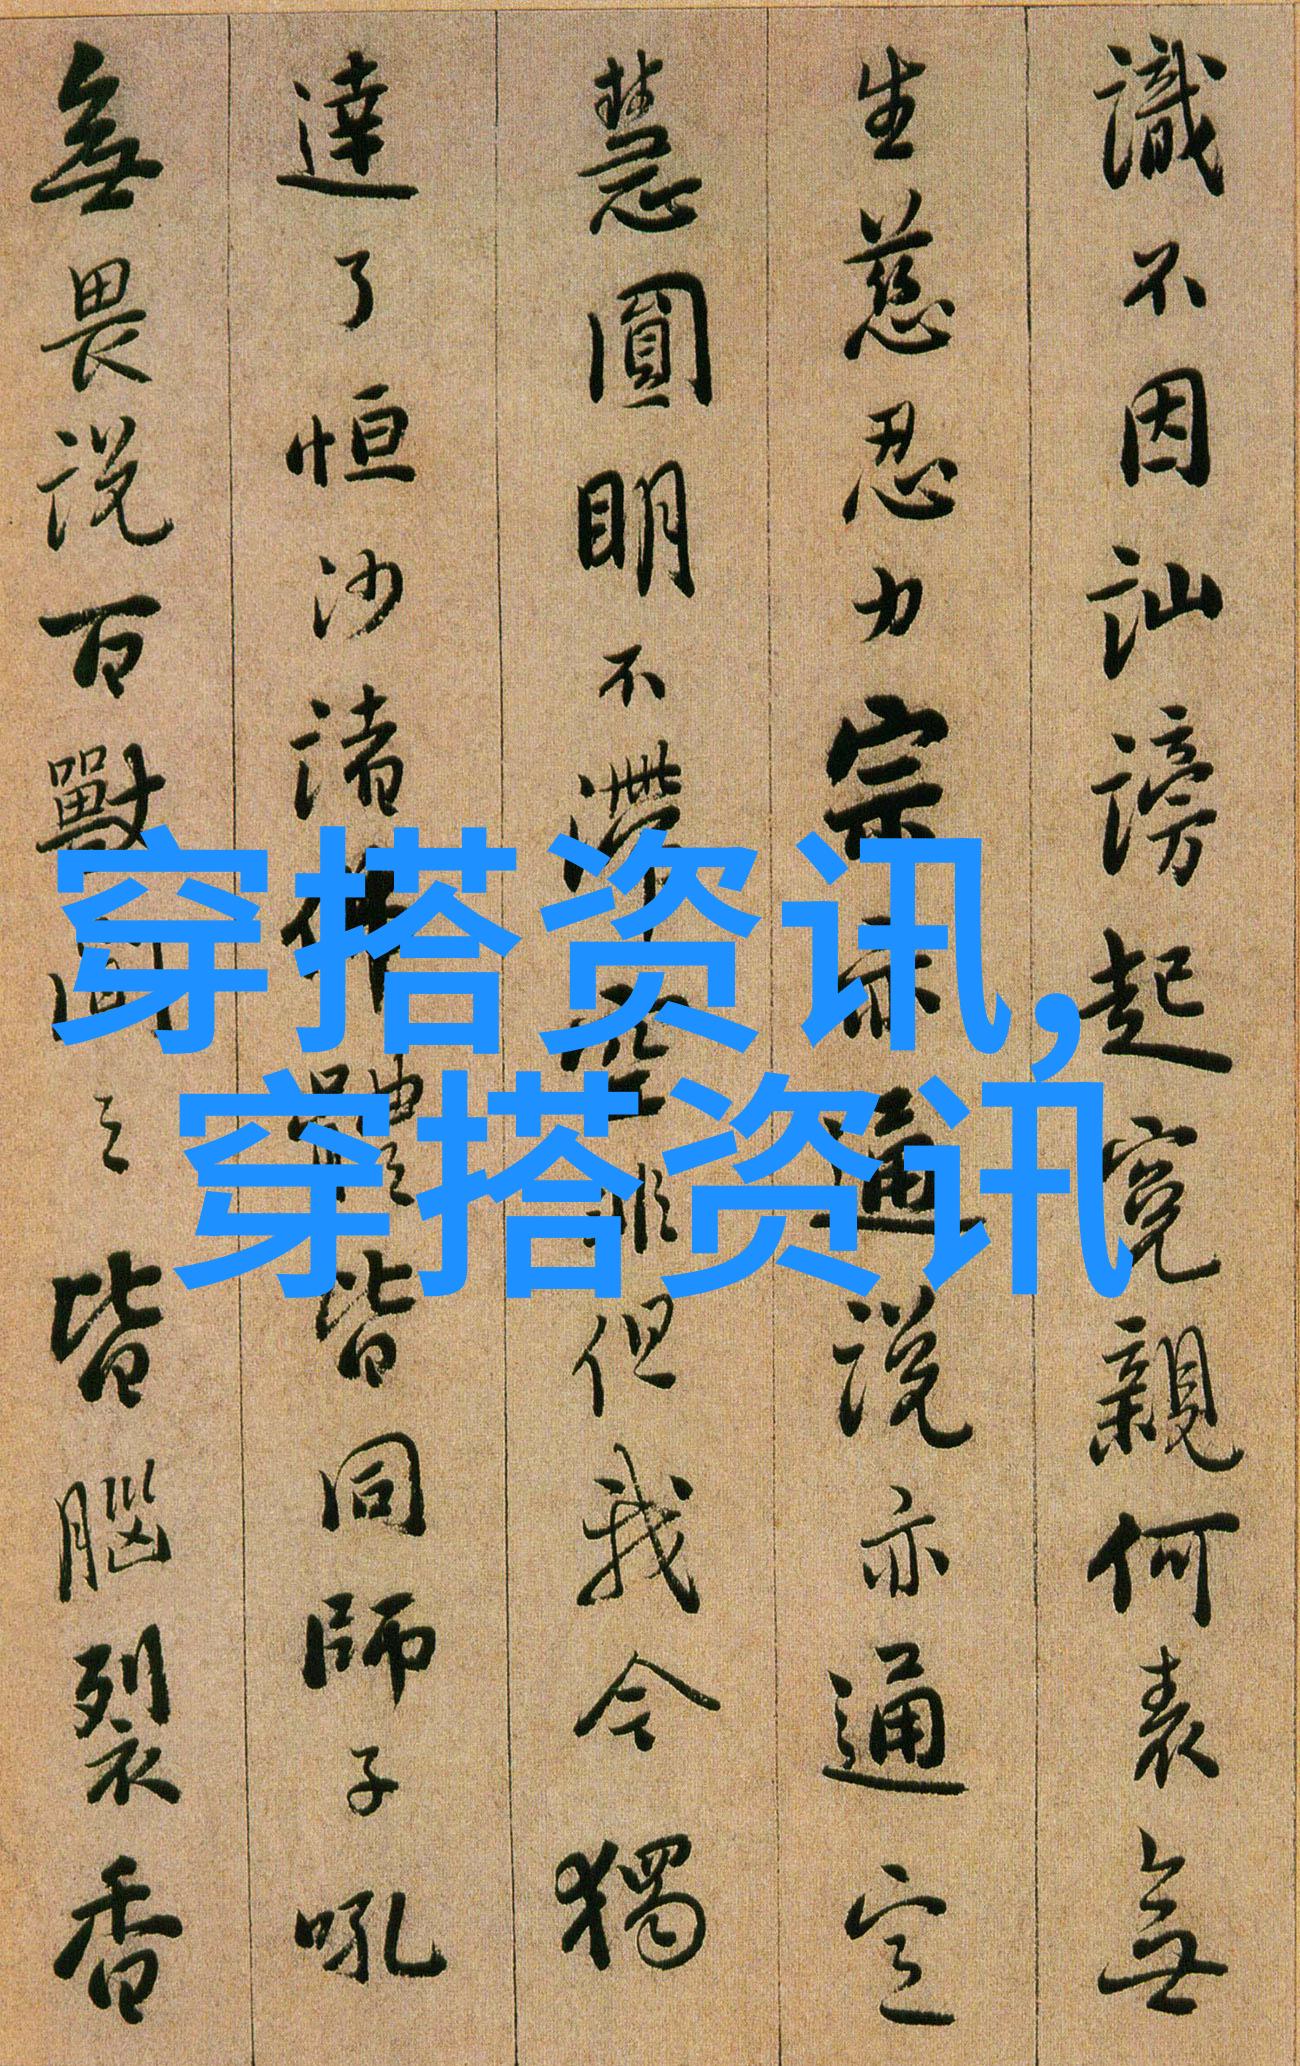 識不因訕謗起寃親何表無
生慈忍力宗亦通說亦通定
慧圓明不滯空非但我今獨
達了恒沙諸佛體皆同師子吼
無畏說百獸聞之皆腦裂香
穿搭资讯,
穿搭资讯